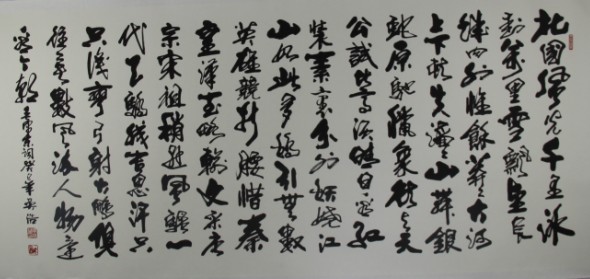 北國風光千里冰
封萬里雪飄望長
城內外惟餘莽莽大河
上下頓失滔滔山舞銀
蛇原馳臘象欲與天
公試比高須晴日看紅
裝素裹分外妖嬈江
山如此多嬌引無數
英雄競折腰惜秦
皇漢武略輸文采唐
宗宋祖稍遜風騷一
代天驕成吉思汗只
只識彎弓射大雕俱
往矣數風流人物還
看今朝